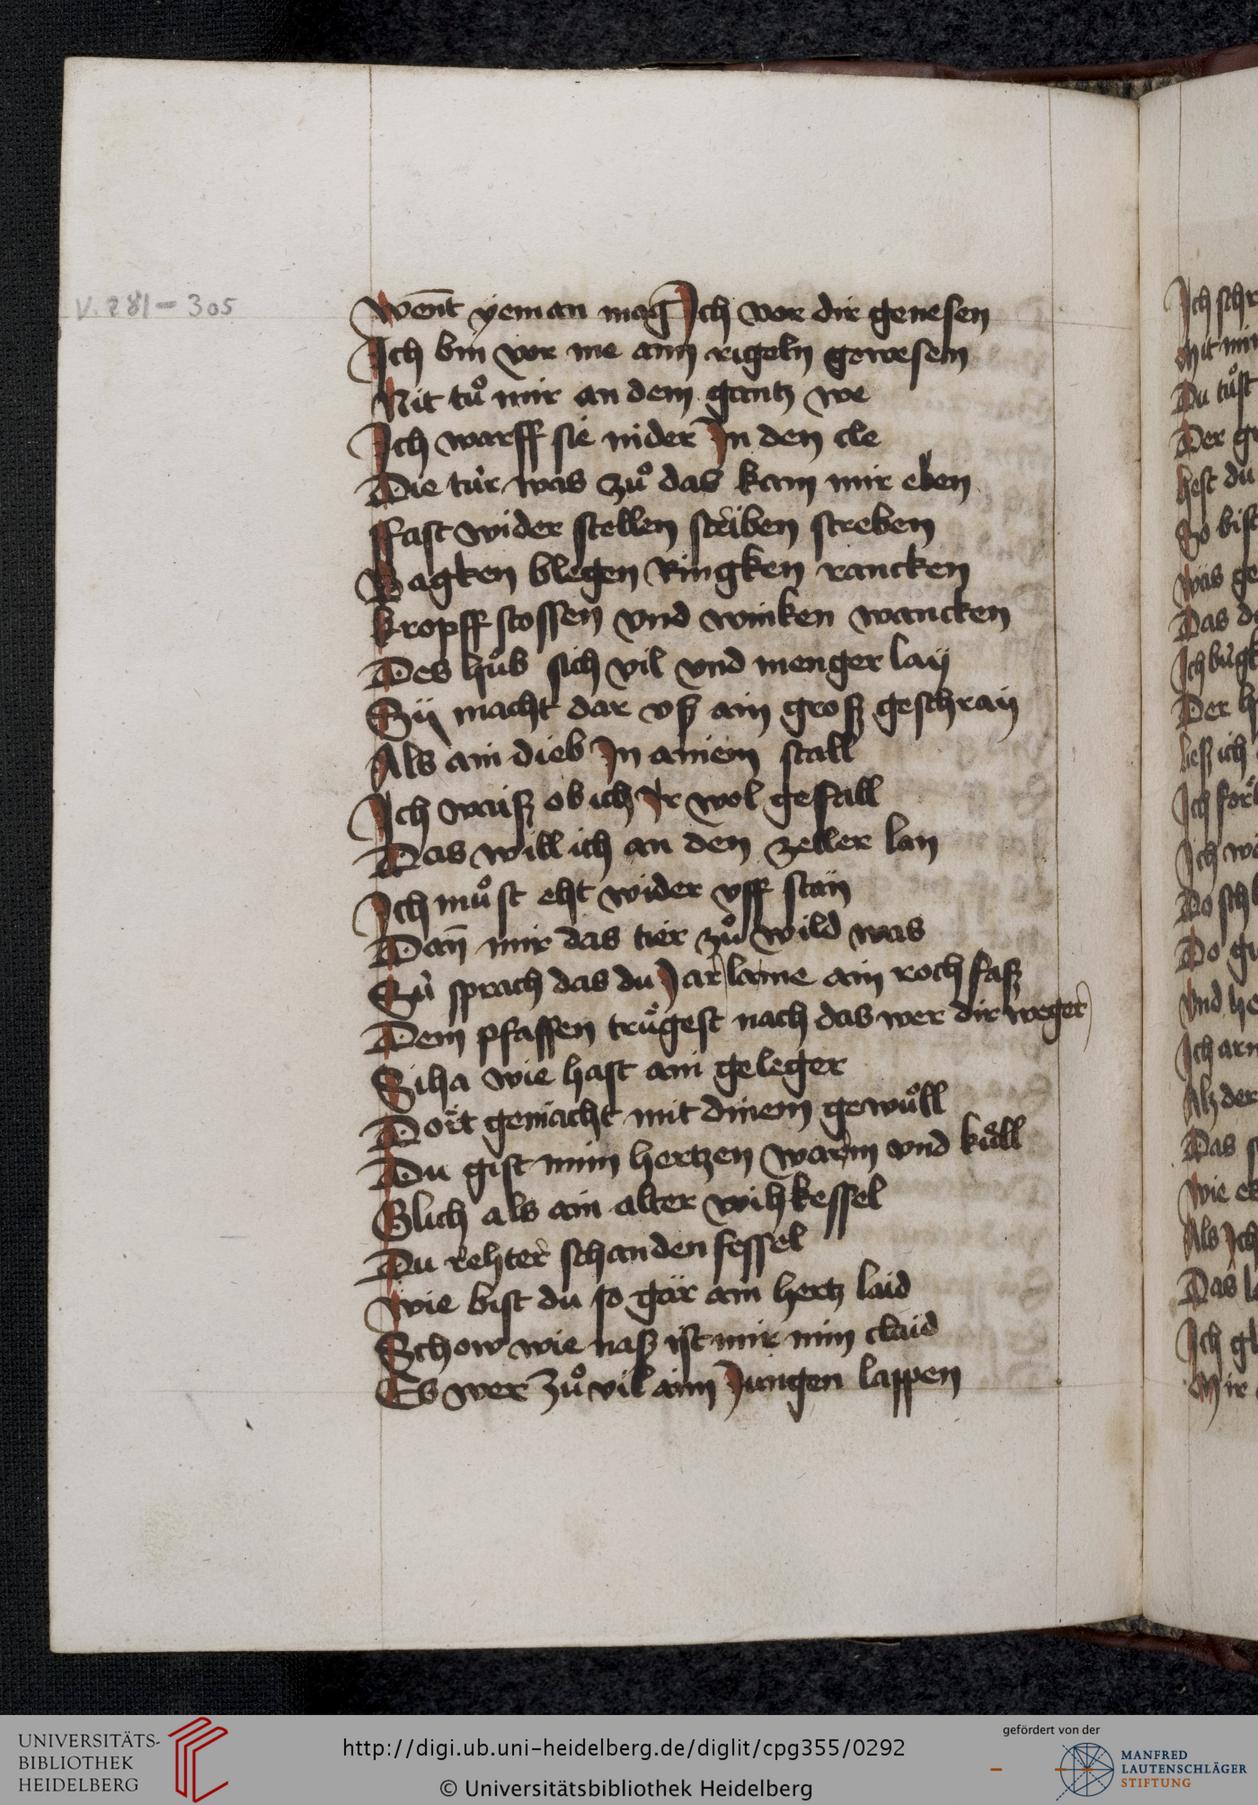 V. 281 - 305
Wēnt yeman mag Ich vor dir genesen
Ich bin vor me ann rigeln gewesen
Nit tuͦ mir an dem gantz we
Ich warff sie nider In den cle
Die tuͤr was zuͦ das kam mir eben
Fast wider stellen striben streben
Bagken blegen Ringken rancken
kropff stossen vnd winken wancken
Des huͦb sich vil vnd menger lay
Sy macht dar vß ain groß geschray
Als ain dieb In ainem stall
Ich waiß ob ich Ir wol gefall
Das will ich an den zeller lan
Ich muͦst eht wider vff stan
Dan̄ mir das tier zuͦ wild was
Sü sprach das du Jar lame ain roch faß
Dem pfaffen truͤgest nach das wer dir weger
Siha wie hast ain geleger
Dort gemacht mit dinem gewuͦll
Du gist minn hertzen warm vnd kuͤll
Glich als ain alter wihkessel
Du rehter schanden fessel
Wie bist du so gar ain hertz laid
Schow wie naß ist mir min claid
Es wer zuͦ vil ainn Jungen lappen
Ich
Mit
Du tuͦst
Der
hest du
So bist
was
Das
Ich
Der
ließ ich
Ich
Ich
Do
Do
vnd
Ich
Als der
Das
wie
Als Ich
Das
Ich
Mir
UNIVERSITÄTS-
BIBLIOTHEK
HEIDELBERG
http://digi.ub.uni-heidelberg.de/diglit/cpg355/0292
© Universitätsbibliothek Heidelberg
gefördert von der
MANFRED
LAUTENSCHLÄGER
STIFTUNG